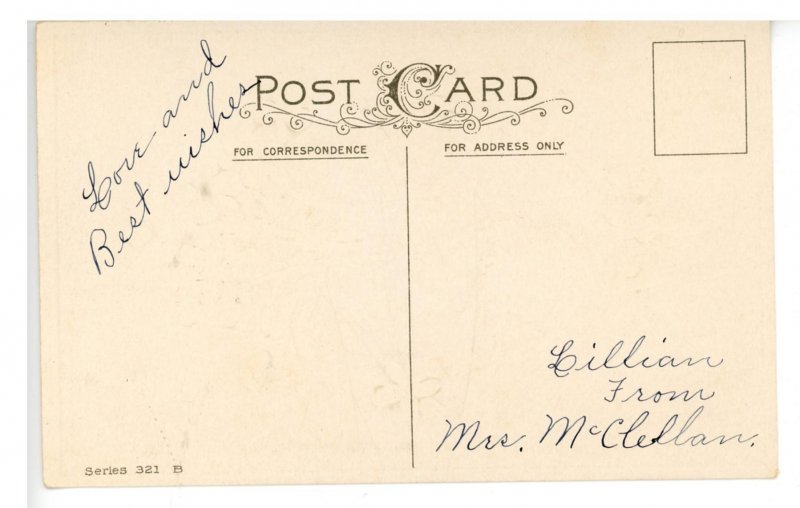 POST CARD
FOR CORRESPONDENCE
FOR ADDRESS ONLY
Love and
Best wishes
Lillian
From
Mrs. McClellan.
Series 321 B